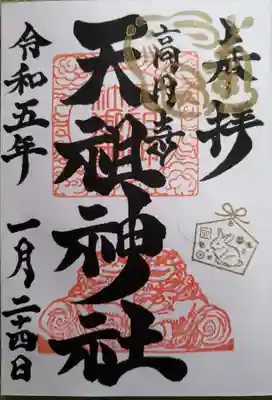 奉拝
高円寺
天祖神社
令和五年 一月二十四日